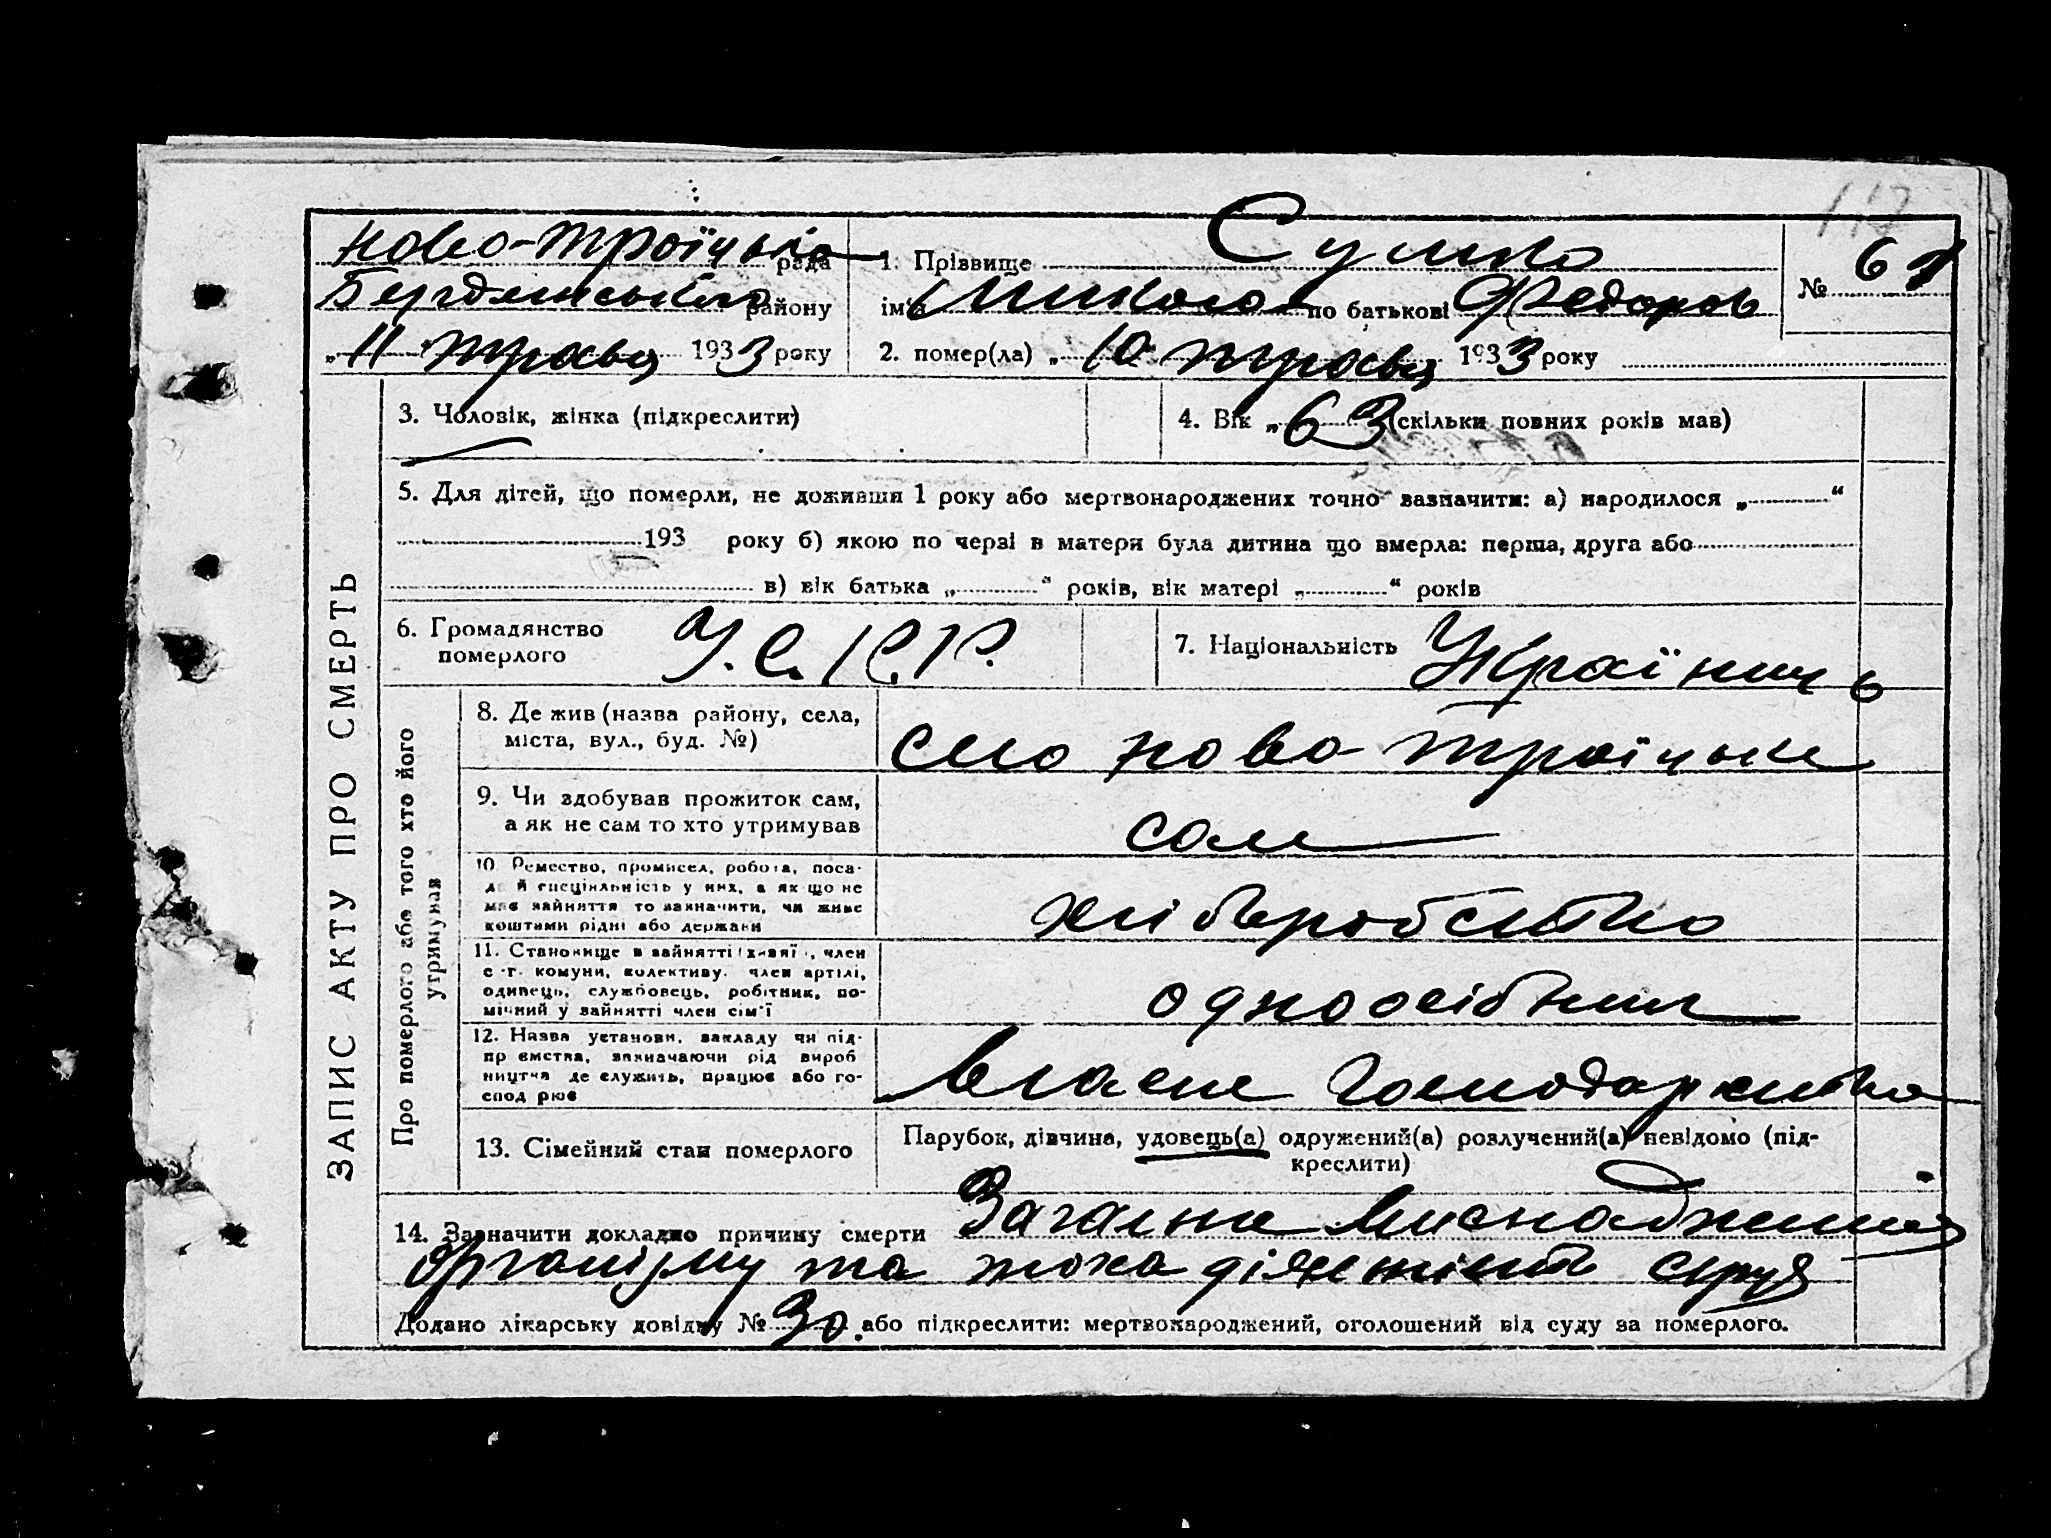 Ново-Троїцька рада
Бердянського району
„11" травня 1933 року
1. Прізвище Сушко
ім'я Микола по батькові Федоров
№ 67
2. помер(ла) „10" травня 1933 року
ЗАПИС АКТУ ПРО СМЕРТЬ
3. Чоловік, жінка (підкреслити)
4. Вік „63" (скільки повних років мав)
5. Для дітей, що померли, не доживши 1 року або мертвонароджених точно зазначити: а) народилося „ “
193 року б) якою по черзі в матери була дитина що вмерла: перша, друга або
в) вік батька „ “ років, вік матері „ “ років
6. Громадянство
померлого У.С.Р.Р.
7. Національність Українець
Про померлого або того хто його
утримував
8. Де жив (назва району, села,
міста, вул., буд. №)
село Ново Троїцьке
9. Чи здобував прожиток сам,
а як не сам то хто утримував
сам
10. Ремество, промисел, робота, поса-
да й спеціяльність у них, а як що не
мав зайняття то зазначити, чи живе
коштами рідні або держави
хліборобство
11. Становище в зайнятті (хазяї), член
с.-г. комуни, колективу, член артілі,
одинець, службовець, робітник, по-
мічний у зайнятті член сім'ї
одноосібник
12. Назва установи, закладу чи під-
приємства, зазначаючи рід вироб
ництва де служить, працює або го-
сподарює
власне господарство
13. Сімейний стан померлого
Парубок, дівчина, удовець(а) одружений(а) розлучений(а) невідомо (під-
креслити)
14. Зазначити докладно причину смерти Загальне виснаження
організму та тока діяльність серця
Додано лікарську довідку № 30. або підкреслити: мертвонароджений, оголошений від суду за померлого.